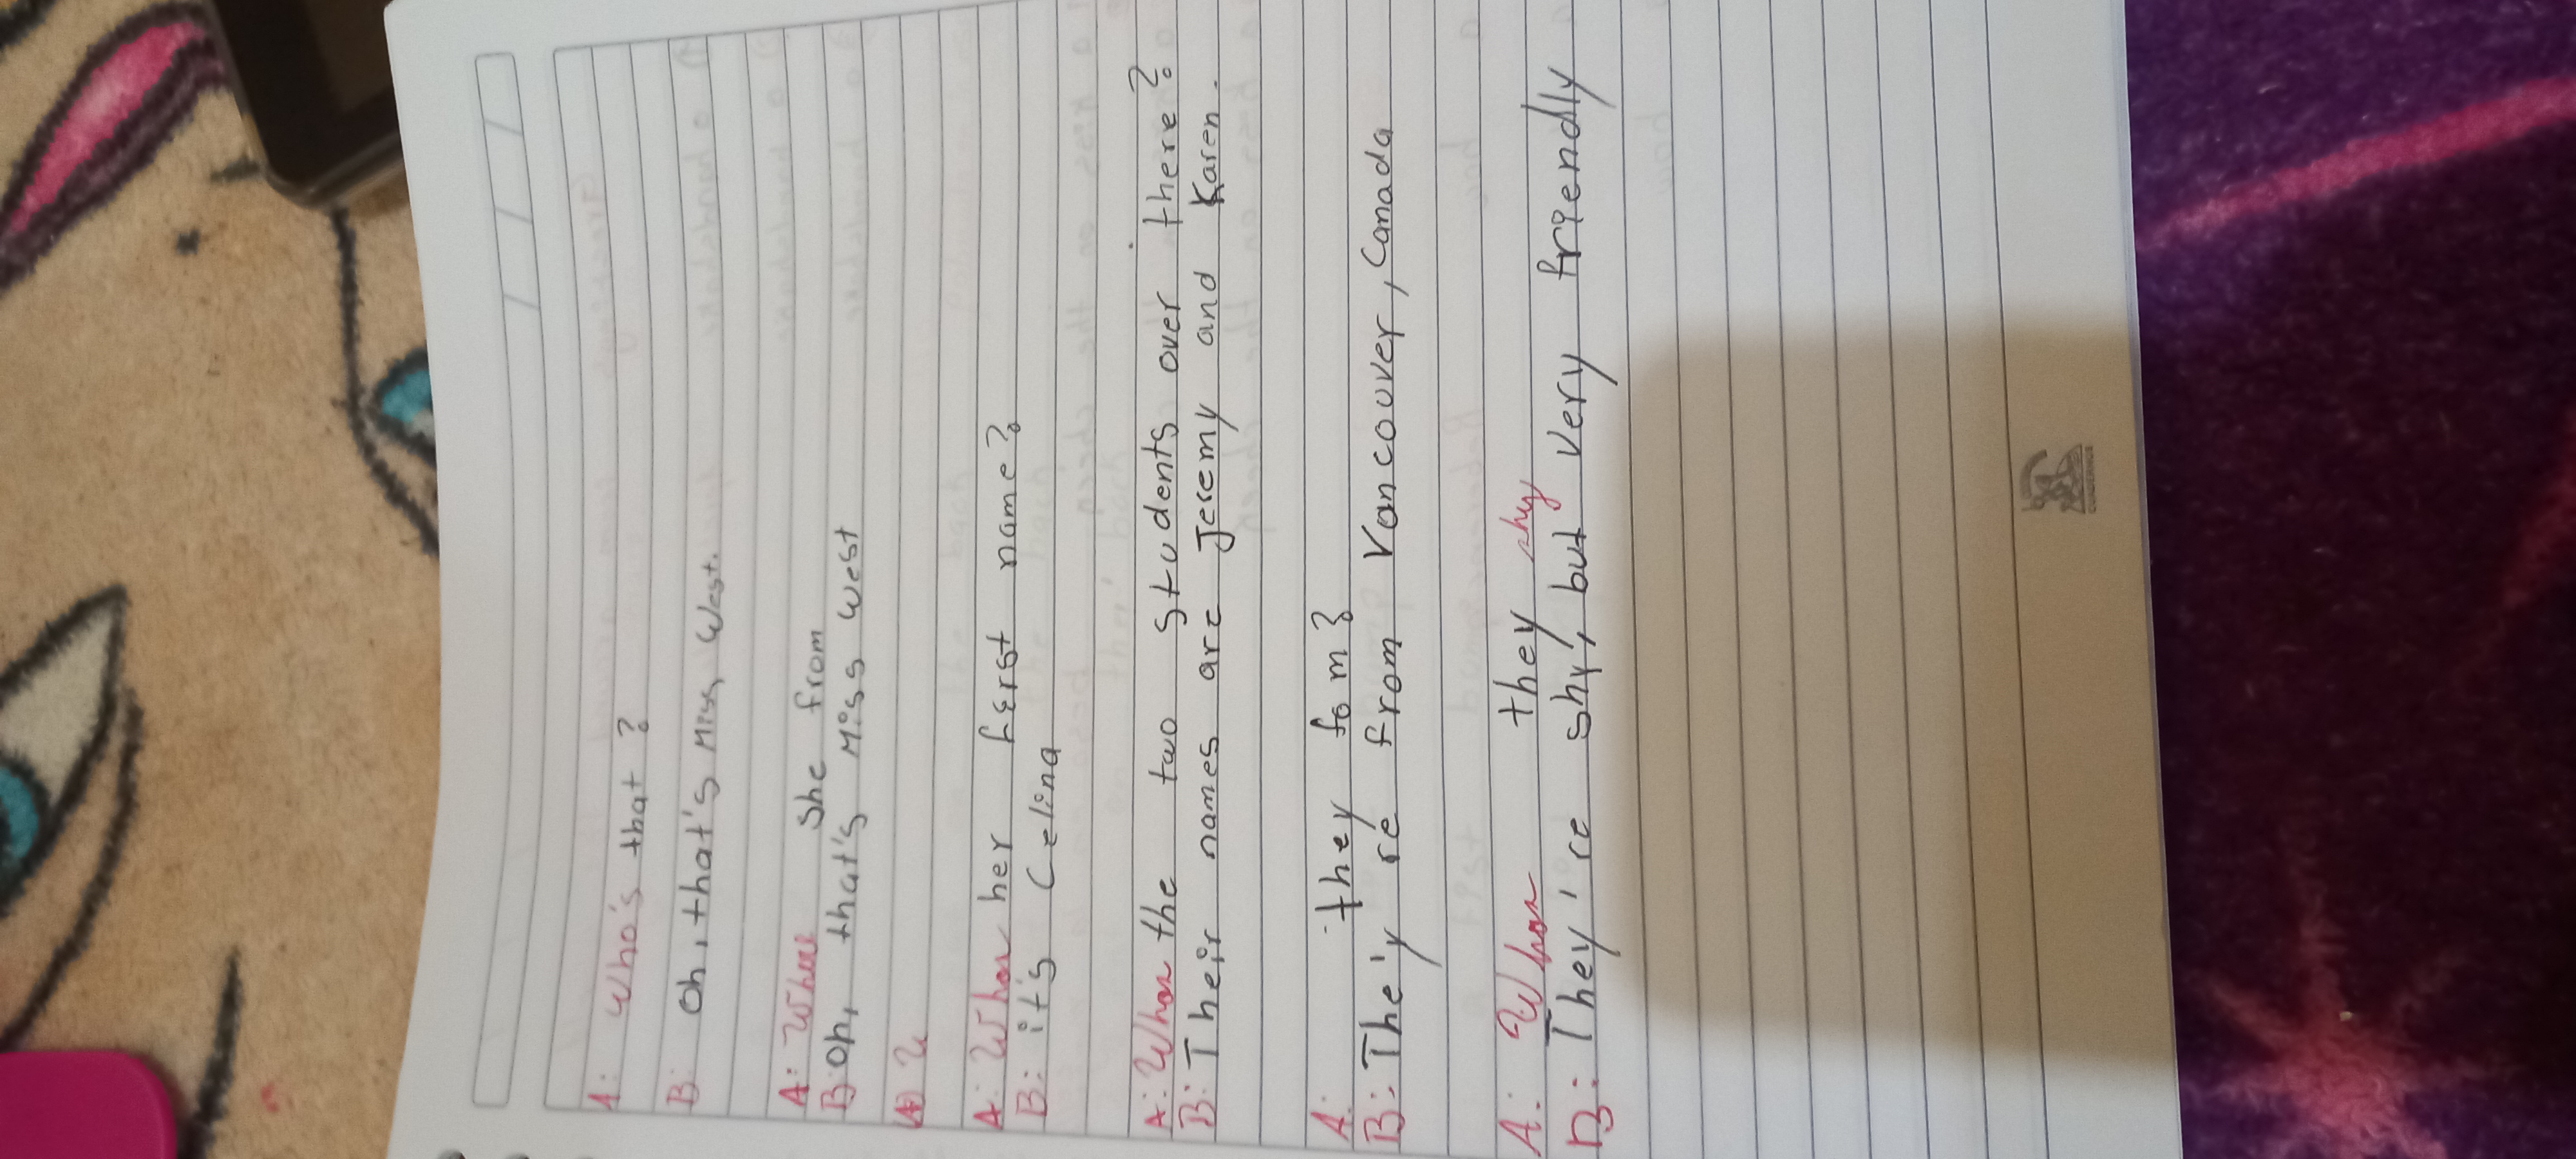 A: Who's that?
B: Oh, that's Miss West.
A: Where she from
B: Oh, that's Miss West
A
A: What her first name?
B: it's Celina
A: the two students over there?
B: Their names are Jeremy and Karen.
A: they fom?
B: The'y re from Vancouver, Canada
A: they shy
B: They're shy, but very friendly